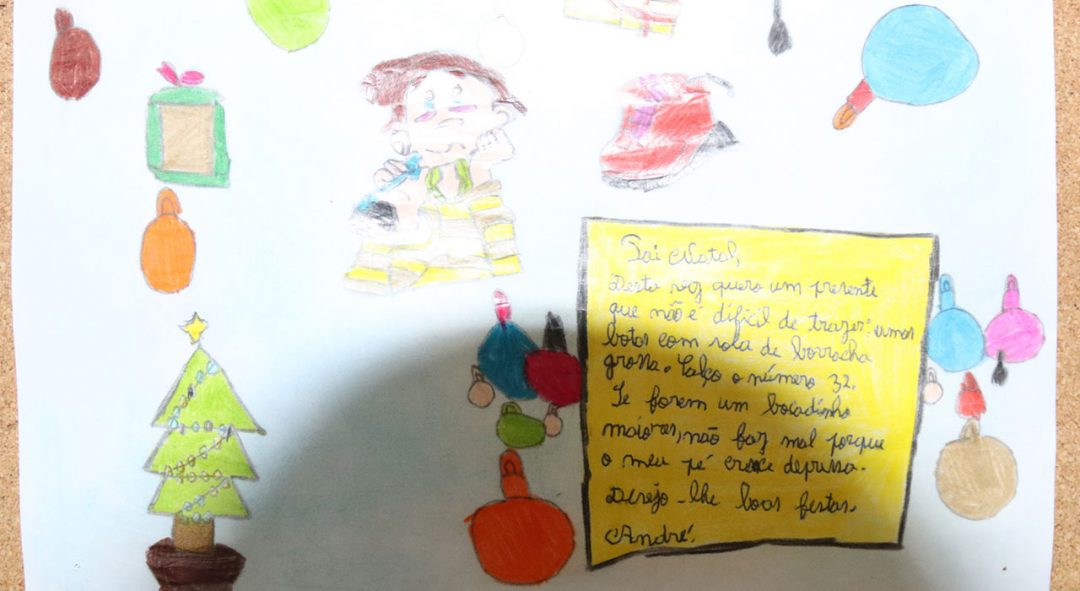 Pai Natal,
Desta vez quero um presente
que não é difícil de trazer: umas
botas com sola de borracha
grossa. Calço o número 32.
Se forem um bocadinho
maiores, não faz mal porque
o meu pé cresce depressa.
Desejo-lhe boas festas.
André.